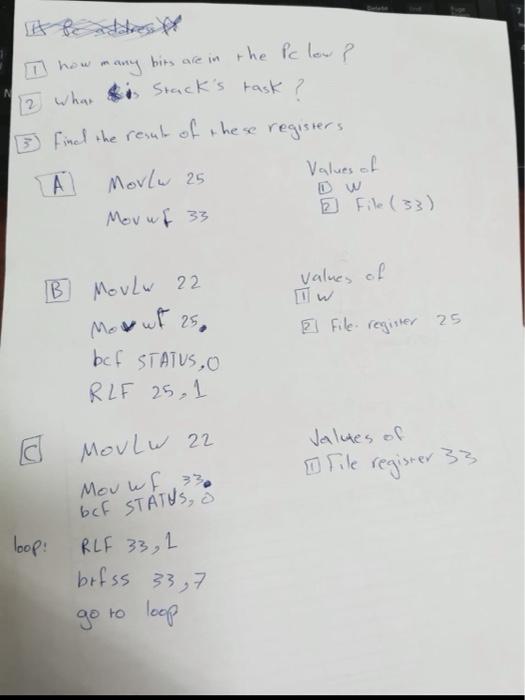 1 how many bits are in the Pc low?
2 what is Stack's task?
3 Find the result of these registers
A Movlw 25
Movwf 33
Values of
1 W
2 File (33)
B Movlw 22
Movwf 25
bcf STATUS,0
RLF 25,1
values of
1 w
2 File register 25
C MovLw 22
Movwf 33
bcf STATUS,0
loop: RLF 33,1
btfss 33,7
go to loop
Values of
1 File register 33